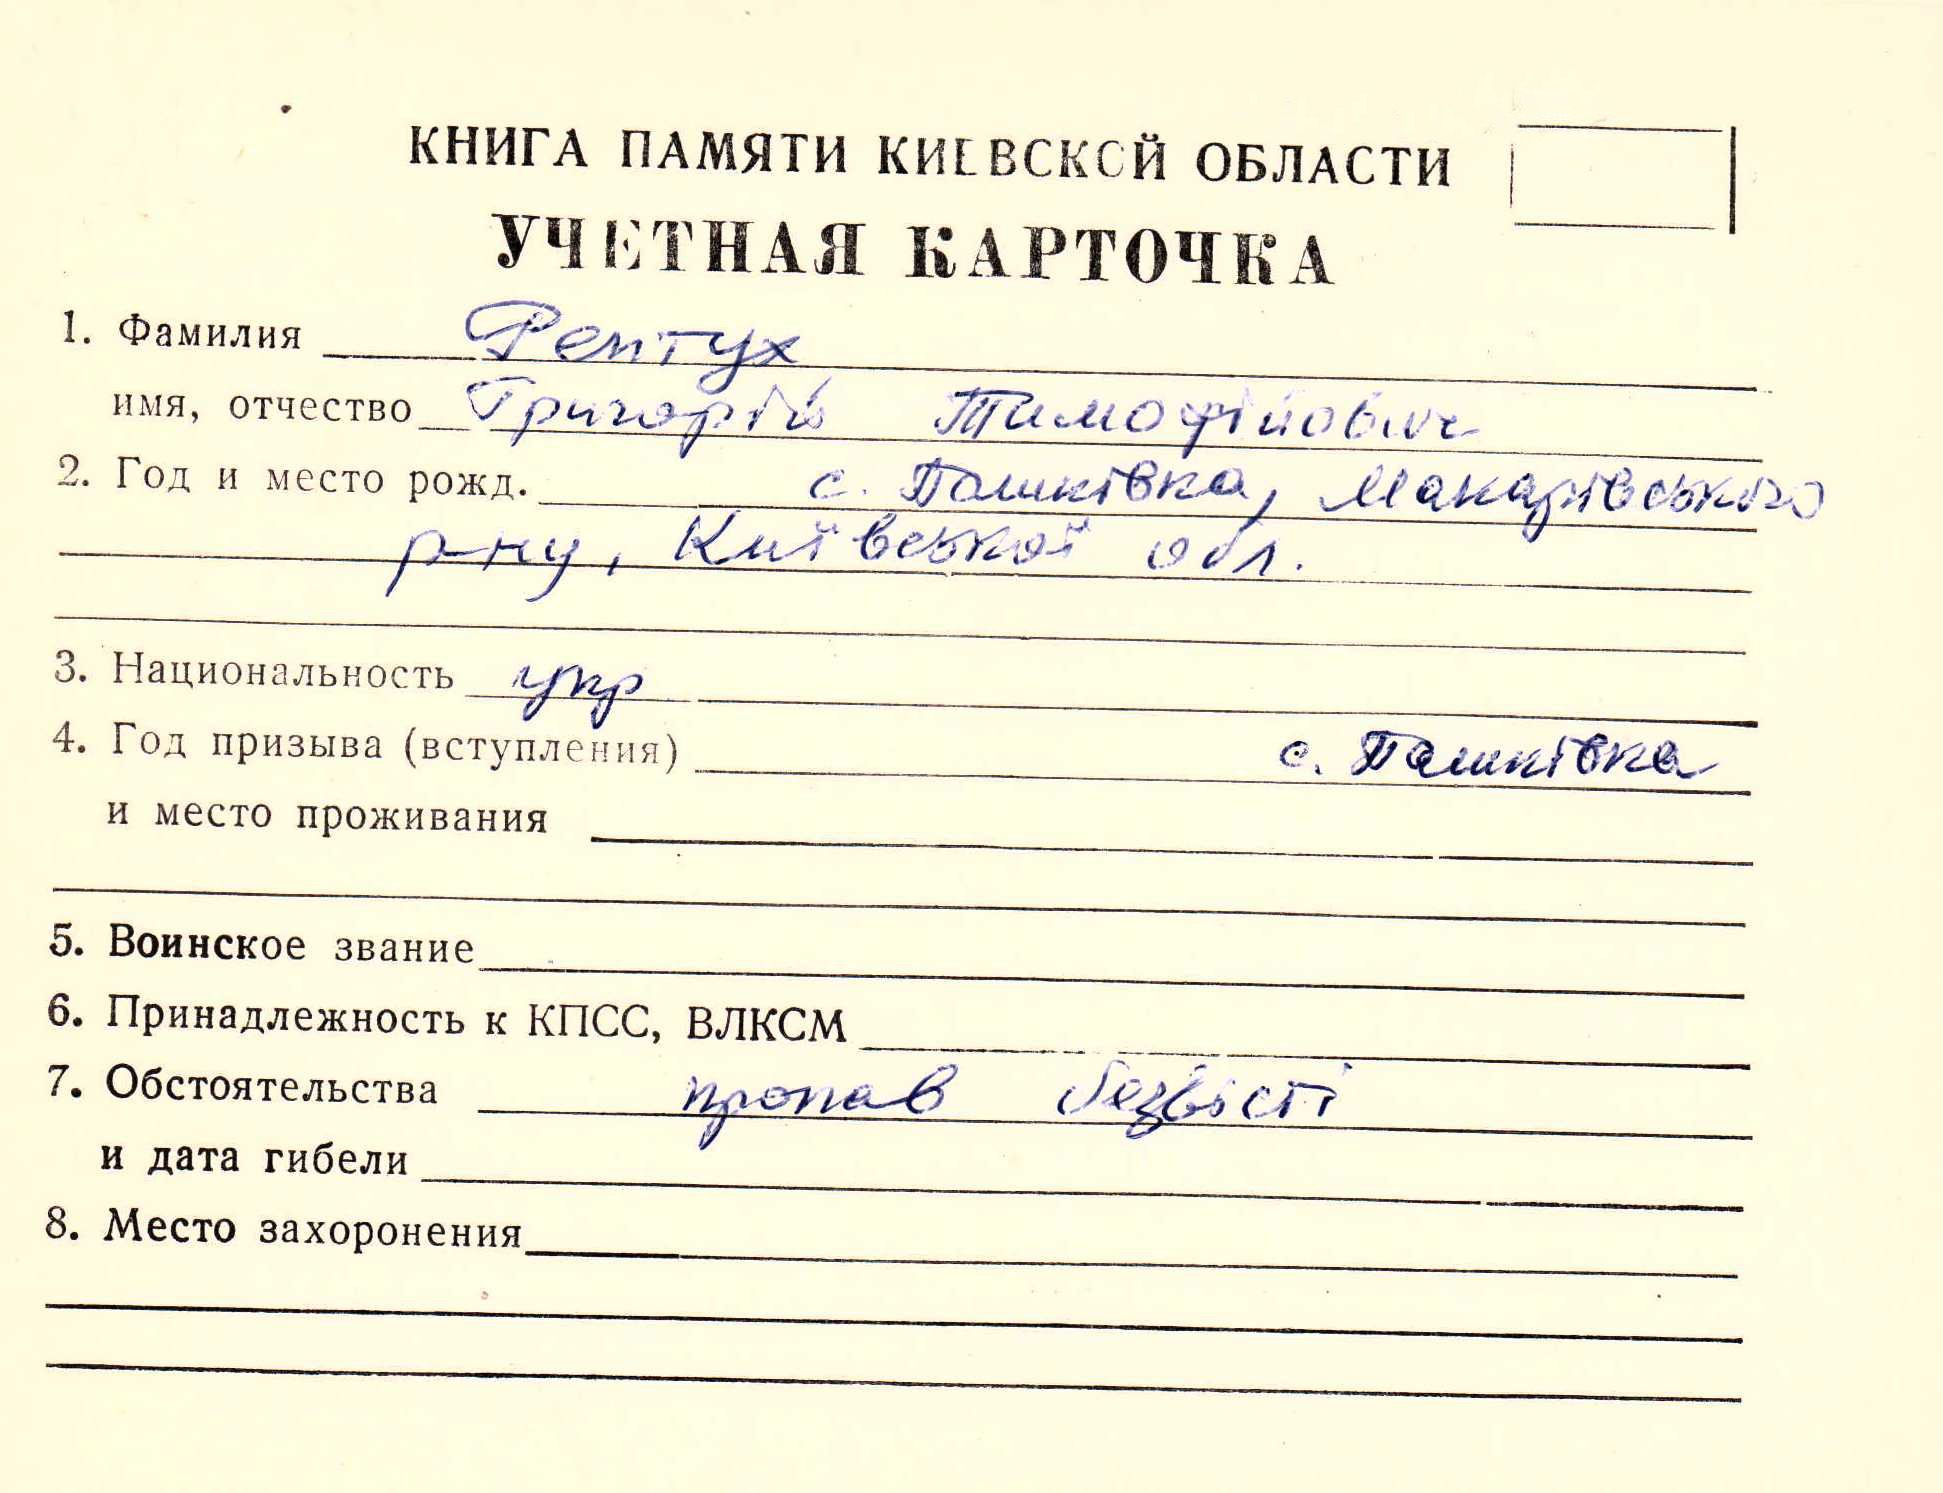 КНИГА ПАМЯТИ КИЕВСКОЙ ОБЛАСТИ
УЧЕТНАЯ КАРТОЧКА
1. Фамилия Рептух
имя, отчество Григорій Тимофійович
2. Год и место рожд. с. Пашківка, Макарівського
р-ну, Київської обл.
3. Национальность укр
4. Год призыва (вступления) с. Пашківка
и место проживания
5. Воинское звание
6. Принадлежность к КПСС, ВЛКСМ
7. Обстоятельства пропав безвісті
и дата гибели
8. Место захоронения